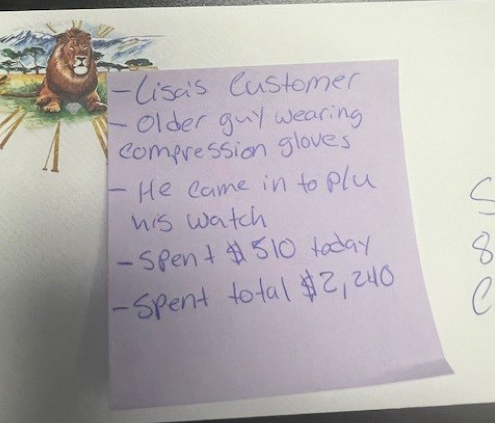 - Lisa's Customer
- Older guy wearing
compression gloves
- He came in to p/u
his watch
- Spent $510 today
- Spent total $2,240
S
8
C